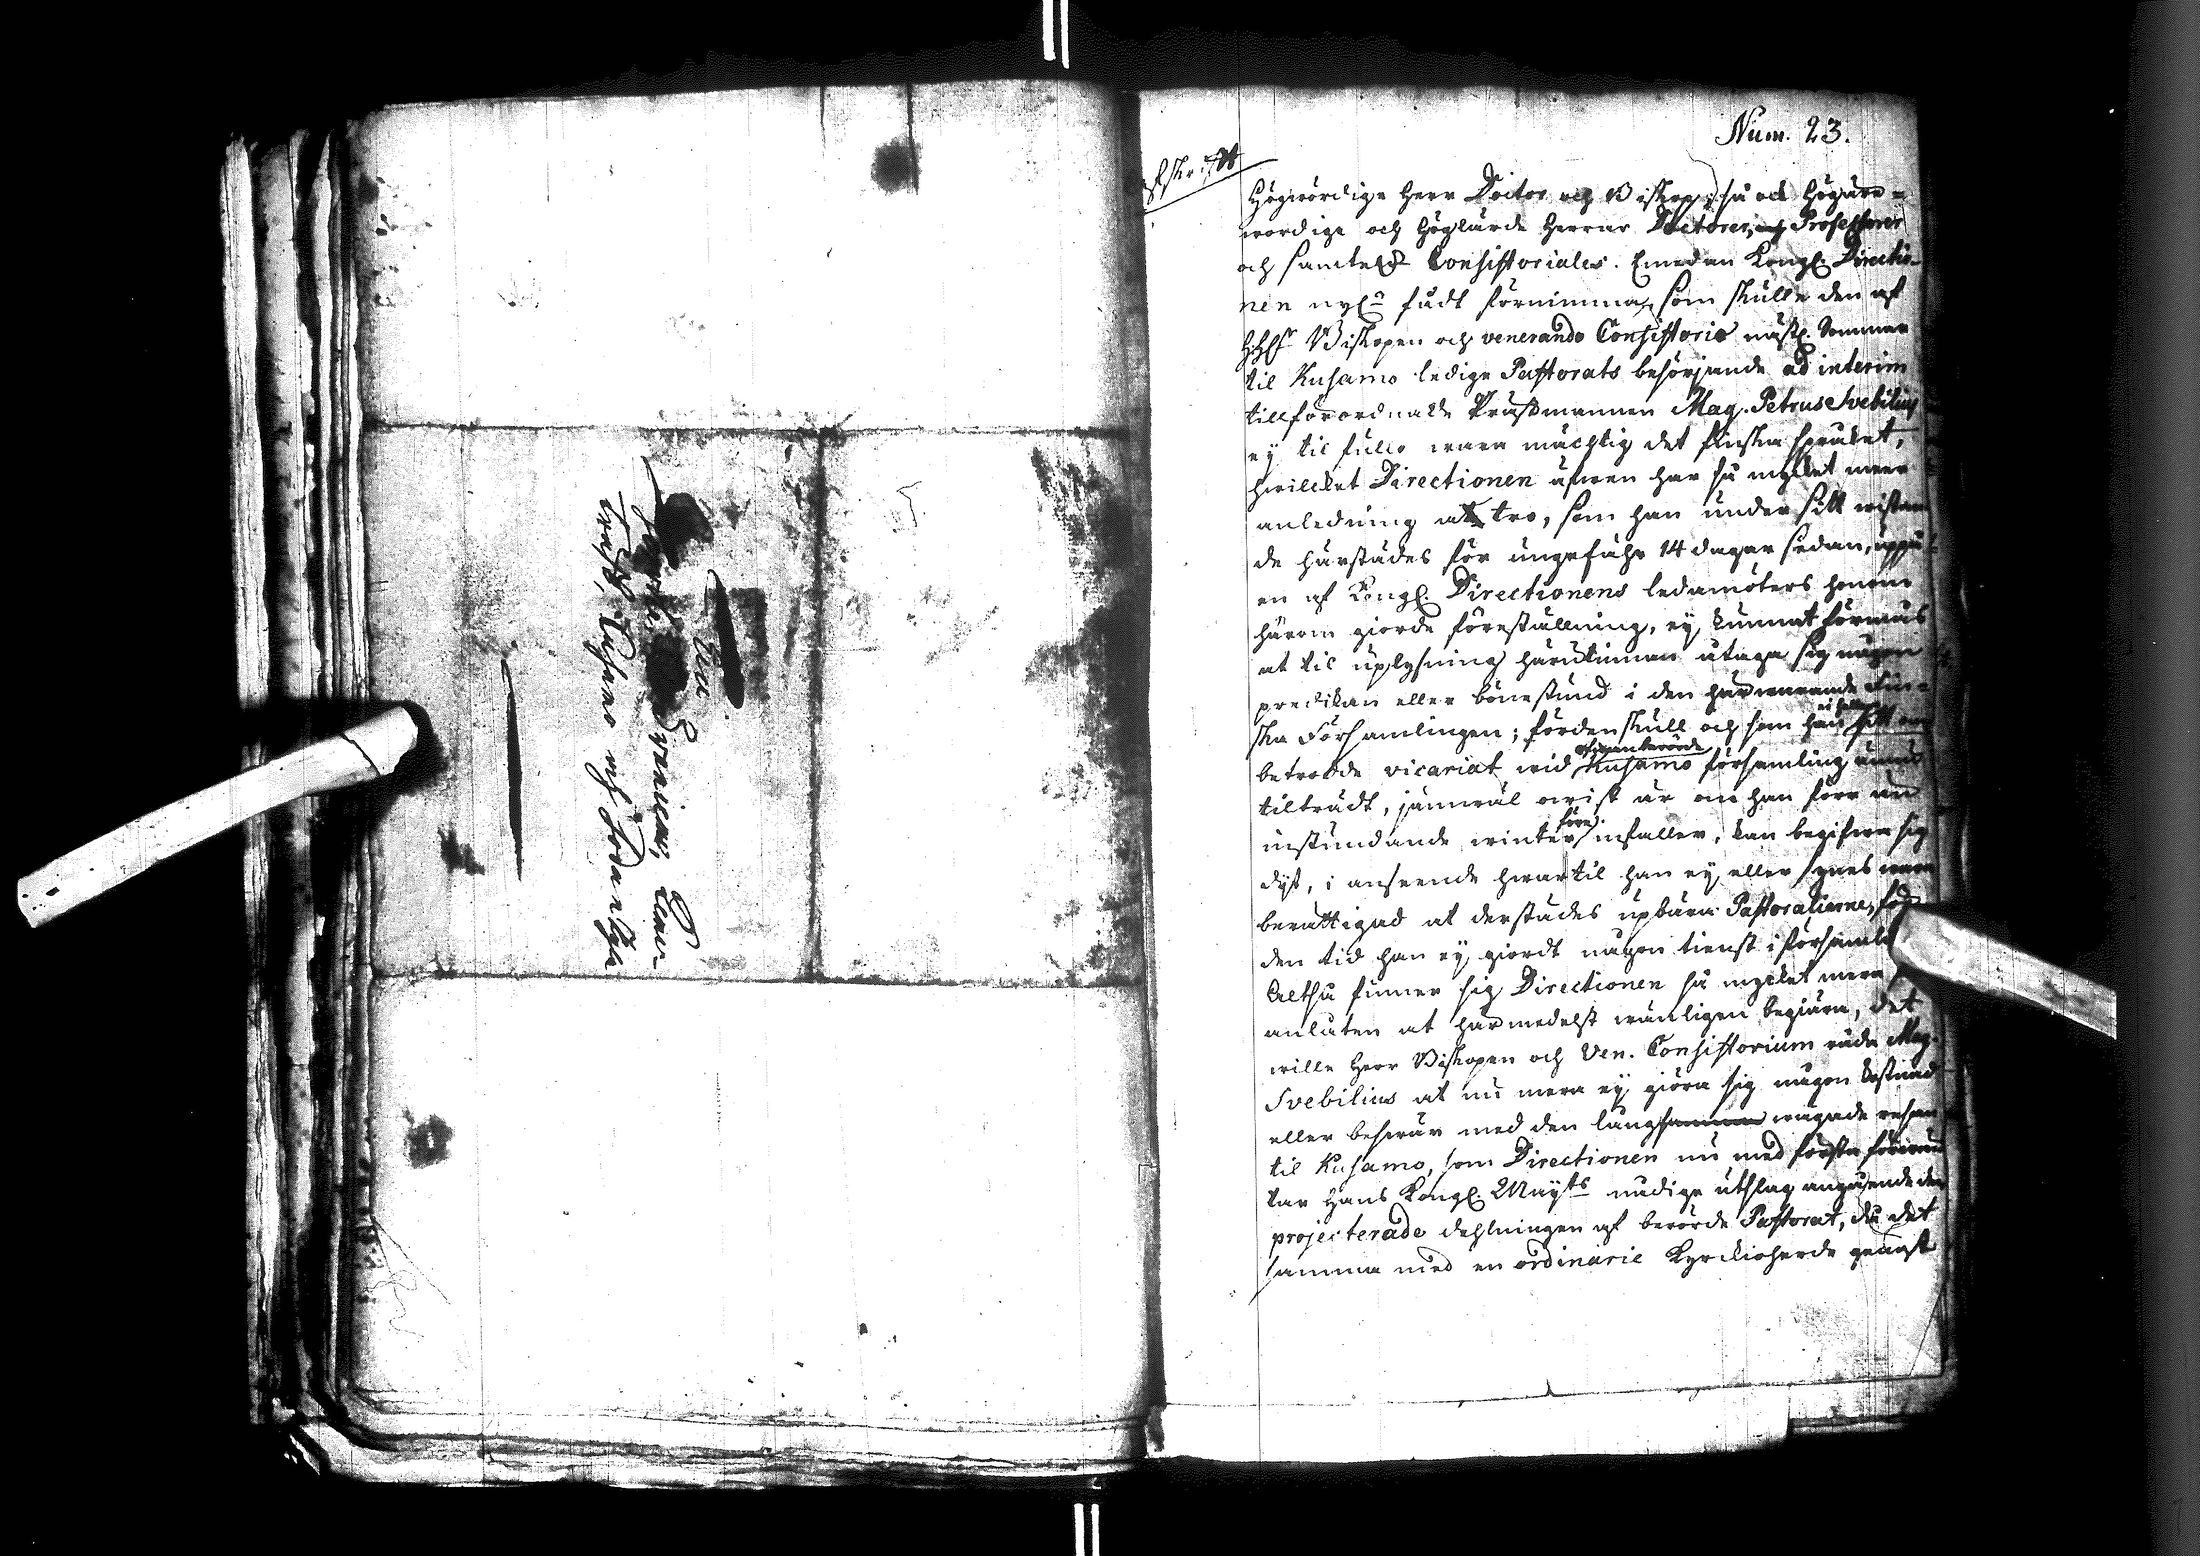 Num. 23.
Afskrifft
Högwördige Herr Doctor och Biskop, så ock Högäre-
wordige och Höglärde Herrar Doctorer, och Professorer
och samtelige Consistoriales. Emedan Kongl. Directio-
nen nyl. fådt förnimma, som skulle den af
Biskopen och venerando Consistorio näst. Sommar
til Kusamo ledige Pastorats behörjande ad interim
tillförordnade Prästmannen Mag. Petrus Svebilius
ey til fullo wara mächtig det finska språket,
hwilcket Directionen äfwen har så mycket meer
anledning at tro, som han under sitt wistan
de härstädes för ungefähr 14 dagar sedan, uppå
en af Kongl. Directionens ledamöters honom
härom giorde föreställning, ey kunnat förmås
at til uplysning härutinnan utaga sig någon
predikan eller bönestund i den härwarande Fin-
ska Församlingen; fördenskull och som han sitt
betrodde vicariat wid ofwanberörde Kusamo församling ännu
tilträdt, jämwäl owist är om han förr än
instundande winterföre infaller, kan begifwa sig
dyt, i anseende hwartil han ey eller synes wara
berättigad at derstädes upbära Pastoralierne, för
den tid han ey giordt någon tienst i församl
Altså finner sig Directionen så mycket mera
anlåten at härmedelst wänligen begiära, det
wille Herr Biskopen och Ven. Consistorium råda Mag.
Svebilius at nu mera ey giöra sig någon kostnad
eller beswär med den långsamma wägade resan
til Kusamo, som Directionen nu med första förwän
tar Hans Kongl. Mayts nådige utslag angående den
projecterade dehlningen af berörde Pastorat, då det
samma med en ordinarie Kyrckioherde